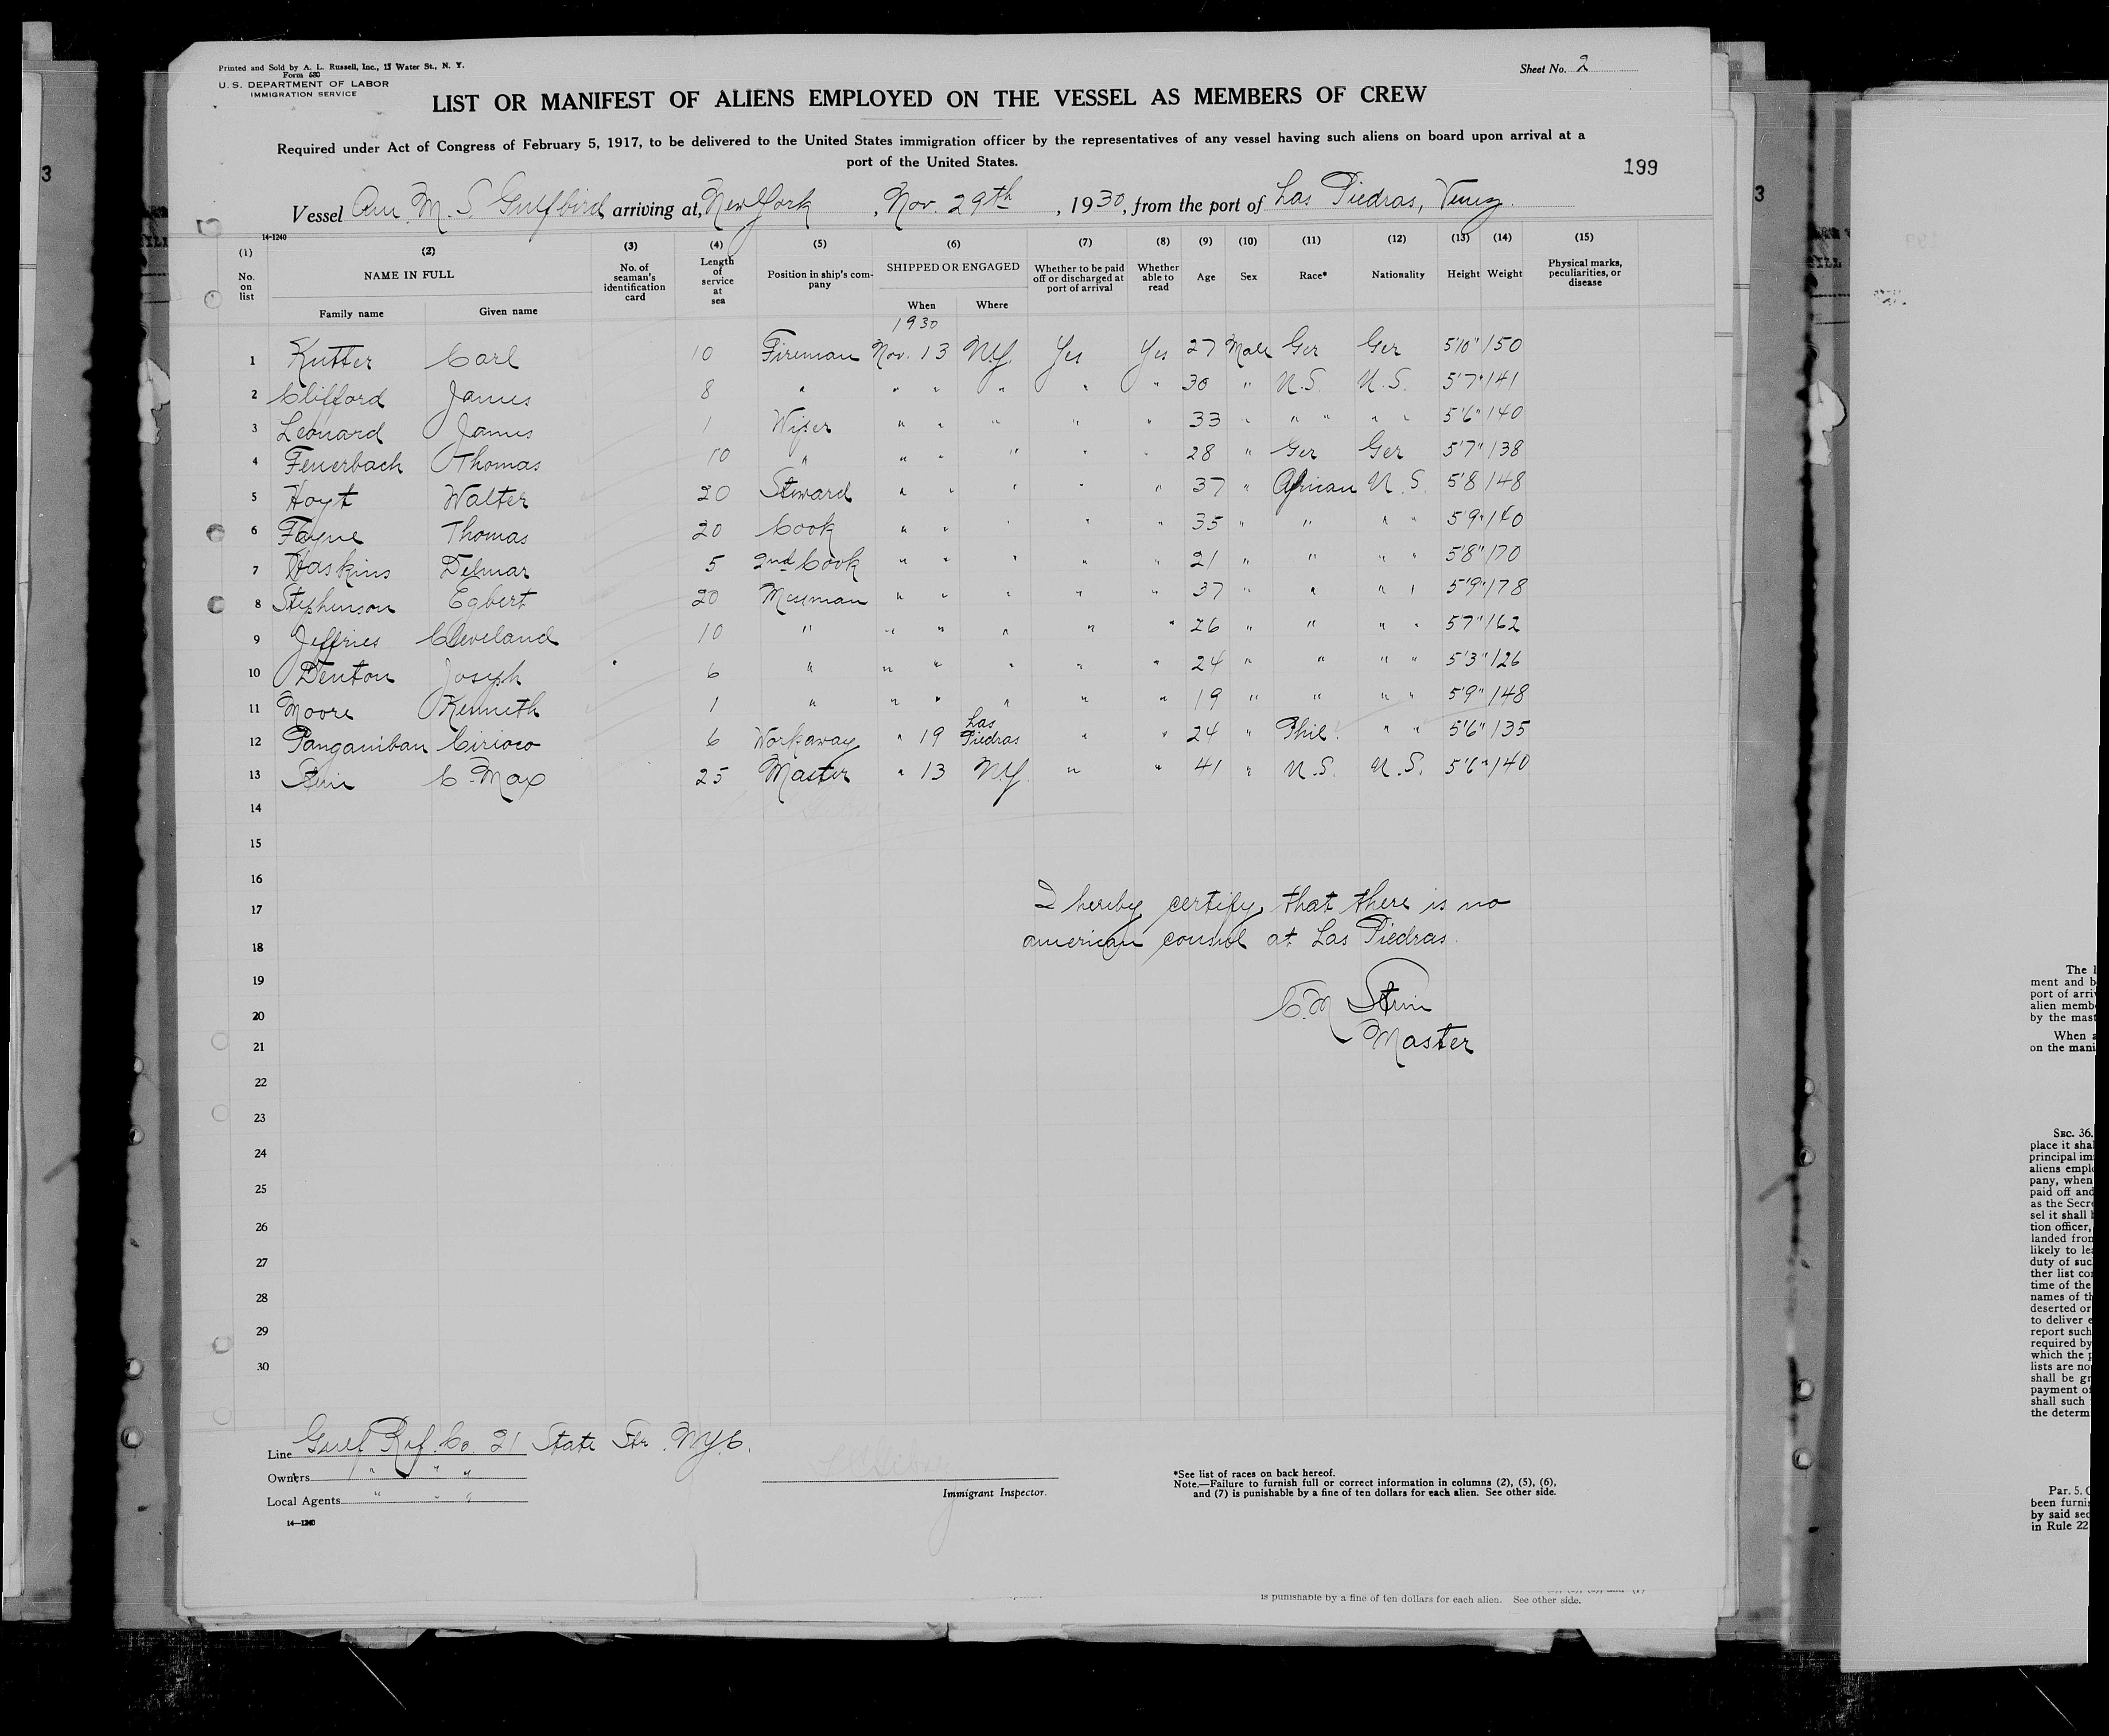 Printed and Sold by A. L. Russell, Inc., 15 Water St., N. Y.
Form 680
U. S. DEPARTMENT OF LABOR
IMMIGRATION SERVICE
Sheet No. 2
LIST OR MANIFEST OF ALIENS EMPLOYED ON THE VESSEL AS MEMBERS OF CREW
Required under Act of Congress of February 5, 1917, to be delivered to the United States immigration officer by the representatives of any vessel having such aliens on board upon arrival at a
port of the United States.
199
Vessel Am. M. S. Gulfbird arriving at, New York, Nov. 29th, 1930, from the port of Las Piedras, Venez.
14-1240
(1) (2) (3) (4) (5) (6) (7) (8) (9) (10) (11) (12) (13) (14) (15)
No. on list NAME IN FULL No. of seaman's identification card Length of service at sea Position in ship's company SHIPPED OR ENGAGED Whether to be paid off or discharged at port of arrival Whether able to read Age Sex Race* Nationality Height Weight Physical marks, peculiarities, or disease
Family name Given name When Where
1930
1 Kutter Carl 10 Fireman Nov. 13 N.Y. Yes Yes 27 Male Ger Ger 5'10" 150
2 Clifford James 8 " " " " " " 30 " U.S. U.S. 5'7" 141
3 Leonard James 1 Wiper " " " " " 33 " " " " " 5'6" 140
4 Feuerbach Thomas 10 " " " " " " 28 " Ger Ger 5'7" 138
5 Hoyt Walter 20 Steward " " " " " 37 " African U.S. 5'8 148
6 Fayne Thomas 20 Cook " " " " " 35 " " " " 5'9"
7 Haskins Delmar 5 2nd Cook " " " " " 21 " " " " 5'8" 170
8 Stephenson Egbert 20 Messman " " " " " 37 " " " " 5'9" 178
9 Jeffries Cleveland 10 " " " " " " 26 " " " " 5'7" 162
10 Denton Joseph 6 " " " " " " 24 " " " " 5'3" 126
11 Moore Kenneth 1 " " " " " " 19 " " " " 5'9" 148
12 Panganiban Cirioco 6 Workaway " 19 Las Piedras " " 24 " Phil. " " 5'6" 135
13 Stein C. Max 25 Master " 13 N.Y. " " 41 " U.S. U.S. 5'6" 140
14
15
16
17
18
19
20
21
22
23
24
25
26
27
28
29
30
I hereby certify that there is no
american consul at Las Piedras.
C. M Stein
Master
Line Gulf Ref. Co. 21 State Str. N.Y.C.
Owners " " "
Local Agents " " "
14—1240
Immigrant Inspector.
*See list of races on back hereof.
Note.—Failure to furnish full or correct information in columns (2), (5), (6),
and (7) is punishable by a fine of ten dollars for each alien. See other side.
is punishable by a fine of ten dollars for each alien. See other side.
3
3
The
ment and
port of
alien
by the
When
on the
SEC. 36.
place it
principal
aliens
pany, when
paid off and
as the
sel it shall
tion officer,
landed
likely to
duty of
ther list
time of the
names of
deserted or
to deliver
report such
required by
which the
lists are
shall be
payment
shall such
the
Par. 5.
been
by said
in Rule 22